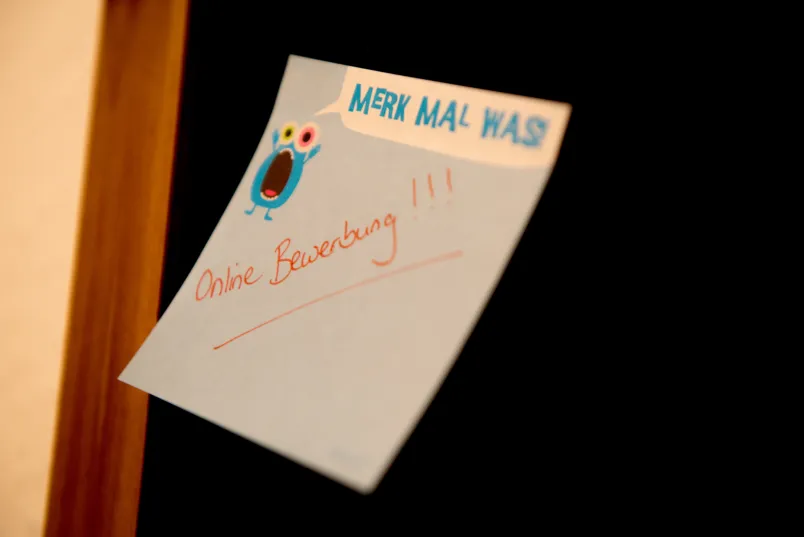 MERK MAL WAS!
Online Bewerbung!!!